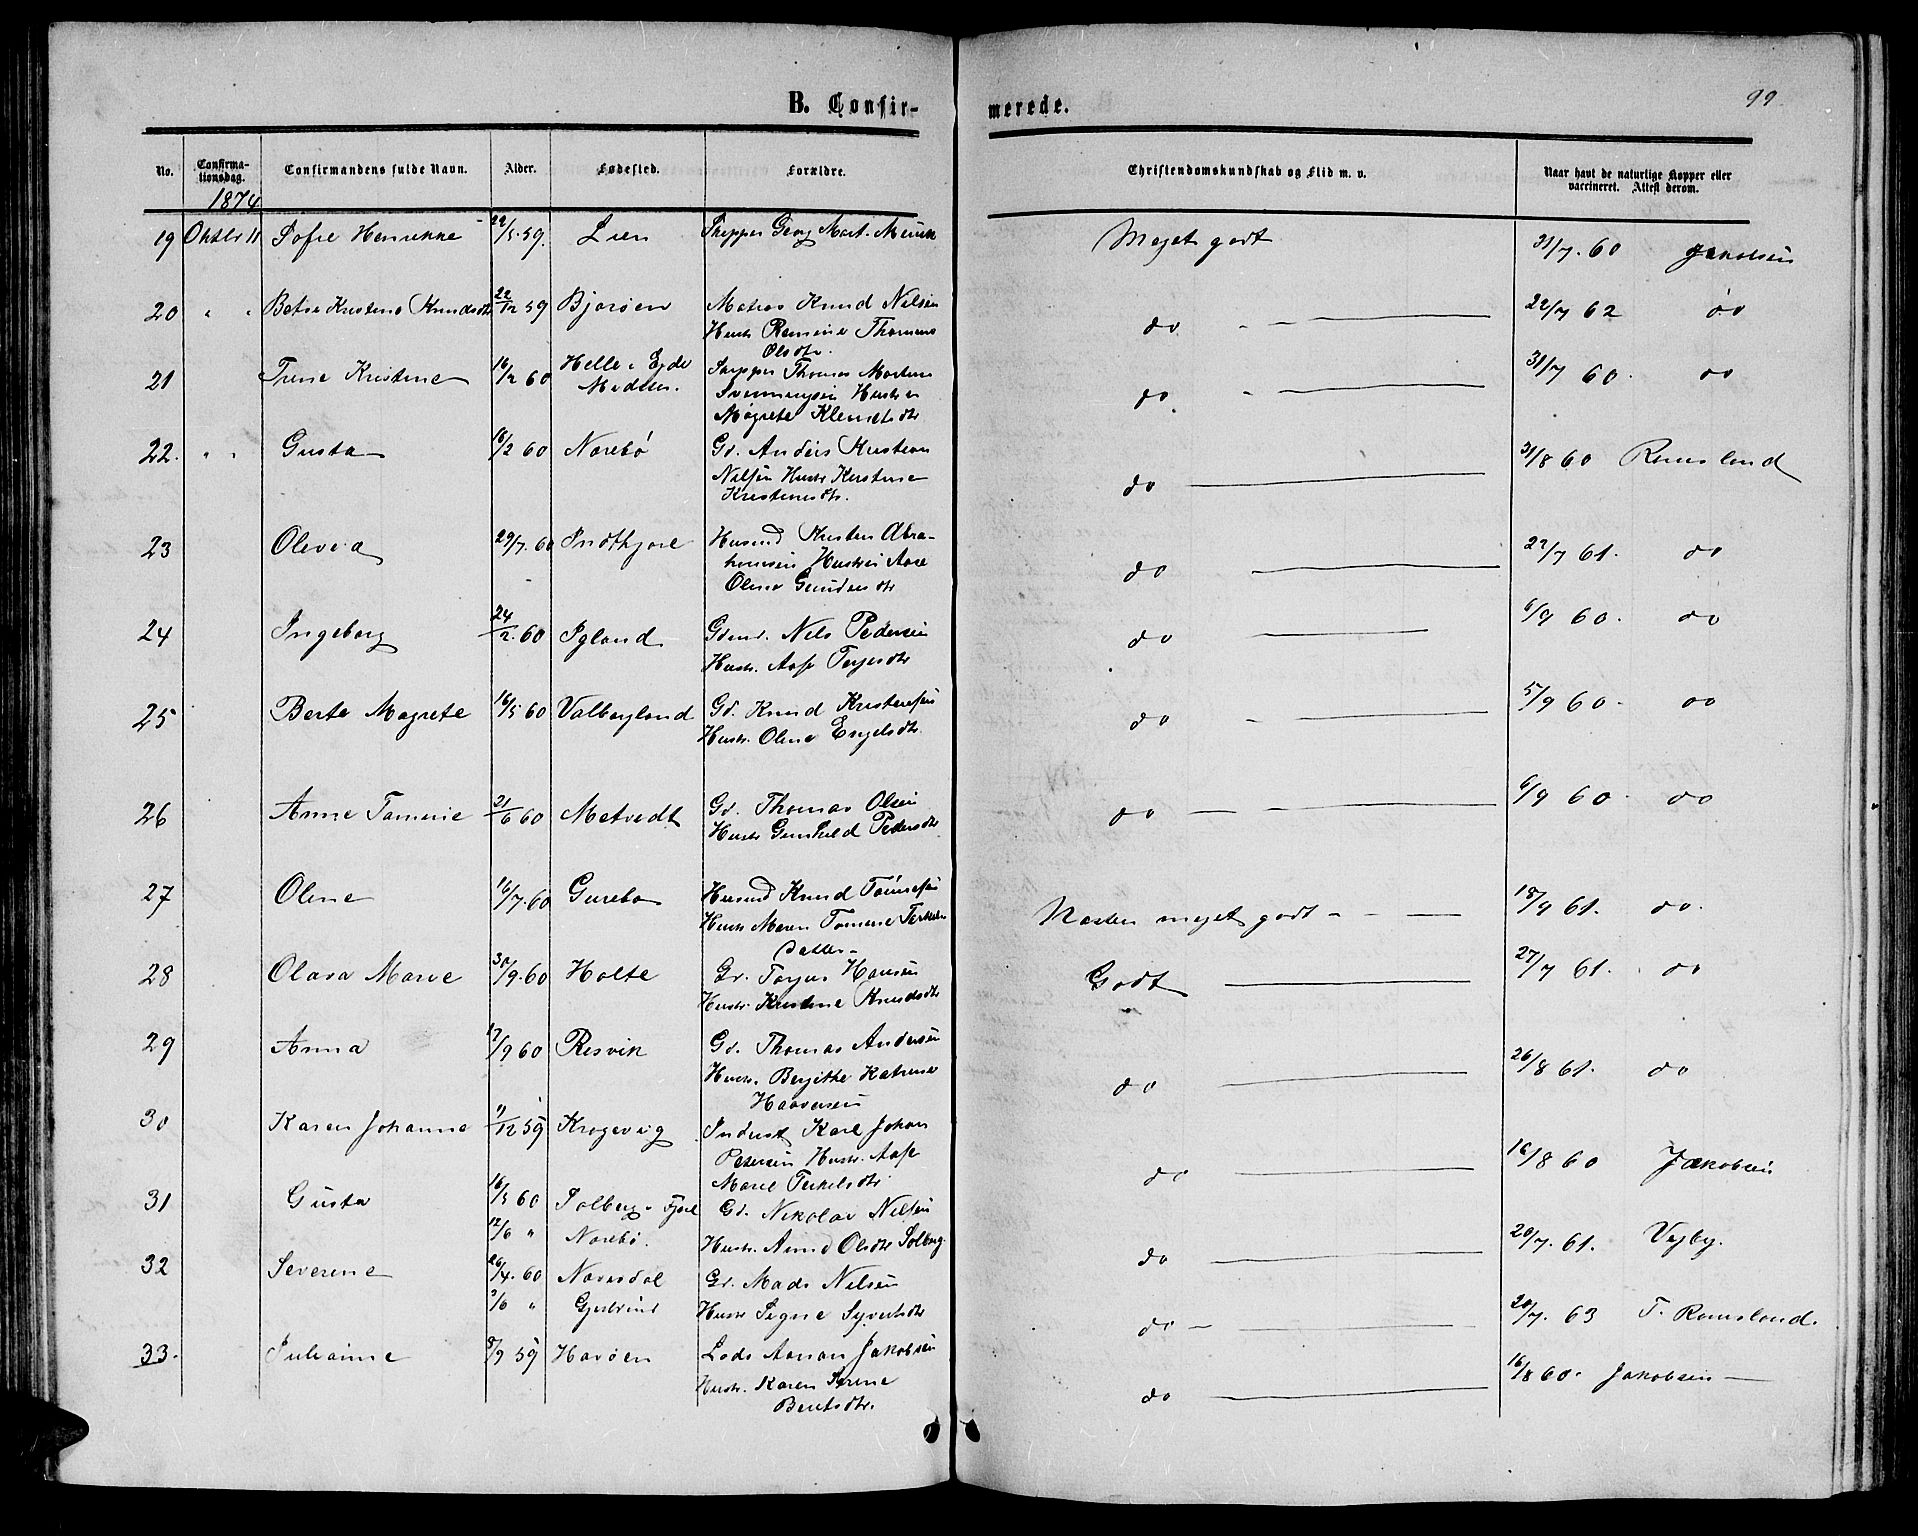 B. Confir-
merede.
99
No.
Confirma-
tionsdag.
Confirmandens fulde Navn.
Alder.
Fødested.
Forældre.
Christendomskundskab og Flid m. v.
Naar havt de naturlige Kopper eller
vaccineret. Attest derom.
1874
19 Oktbr 11 Sofie Henrikke 22/5.59. Lien Skipper Georg Mart.
Meget godt 31/7.60 Jakobsen
20 " " Betse Kristena Knudsdtr 22/12 59 Bjorøen Matros Knud Nilsen
Hustr Thomine
Olsdtr.
do 22/7 62 do
21 Trine Kristine 16/2 60 Helle i Eide Skipper Thomas Morten
Svenningsen Hustru
Magrete Klemetsdtr
do 31/7 60. do
22. " " Gusta 16/2 60 Norebø Gd. Anders Kristian
Nilsen Hustr Kirstine
Kristensdtr.
do 31/8 60 Romsland
23 Olevia 29/7.60 Indthjore Husmd Kristen Abra-
hamsen Hustru Aase
Olene
do 27/7 61. do
24 Ingeborg 24/2.60 Igland Gdmd. Nils Pedersen
Hustr. Aase Terjesdtr
do 6/9 60. do
25 Berte Magrete 16/5 60 Valborgland Gd. Knud Kristensen
Hustr. Olene Engelsdtr.
do 5/9 60. do
26 Anne Tomine 21/6 60 Metvedt Gd. Thomas Olsen
Hustr Gunhild Pedersdtr
do 6/9 60. do
27 Olene 16/7.60 Gurebo Husmd Knud Tønnesen
Hustr Maren Tomine Terkels
datter
Næsten meget godt 18/9 61. do.
28 Olava Marie 30/9.60 Holte Gd. Torjus Hansen
Hustr. Kristine Knudsdtr
Godt 27/7 61. do
29 Anna 17/9 60 Resvik Gd. Thomas Andersen
Hustr. Bergithe Katrine
Haavorsen
do 26/8 61. do
30 Karen Johanne 9/12 59 Krogevig Inderst Karl Johan
Petersen Hustr. Aase
Marie Terkelsdtr
do 16/8 60 Jakobsen
31 Gusta 16/5 60 Solberg i Fjære Gd. Nikolai Nilsen
12/6 " Norebø. Hustr. Anne Olsdtr Solberg
do 20/7.61. Vejby.
32 Severine 26/4.60 Navesdal Gd. Mads Nilsen
2/6 " Hustr Signe Syvertsdtr
do 20/7.63 T. Romsland.
33. Julianne 8/9 59 Havøen Lods Aanon Jakobsen
Hustr. Karen Serine
Bentsdtr.
do 16/8 60. Jakobsen